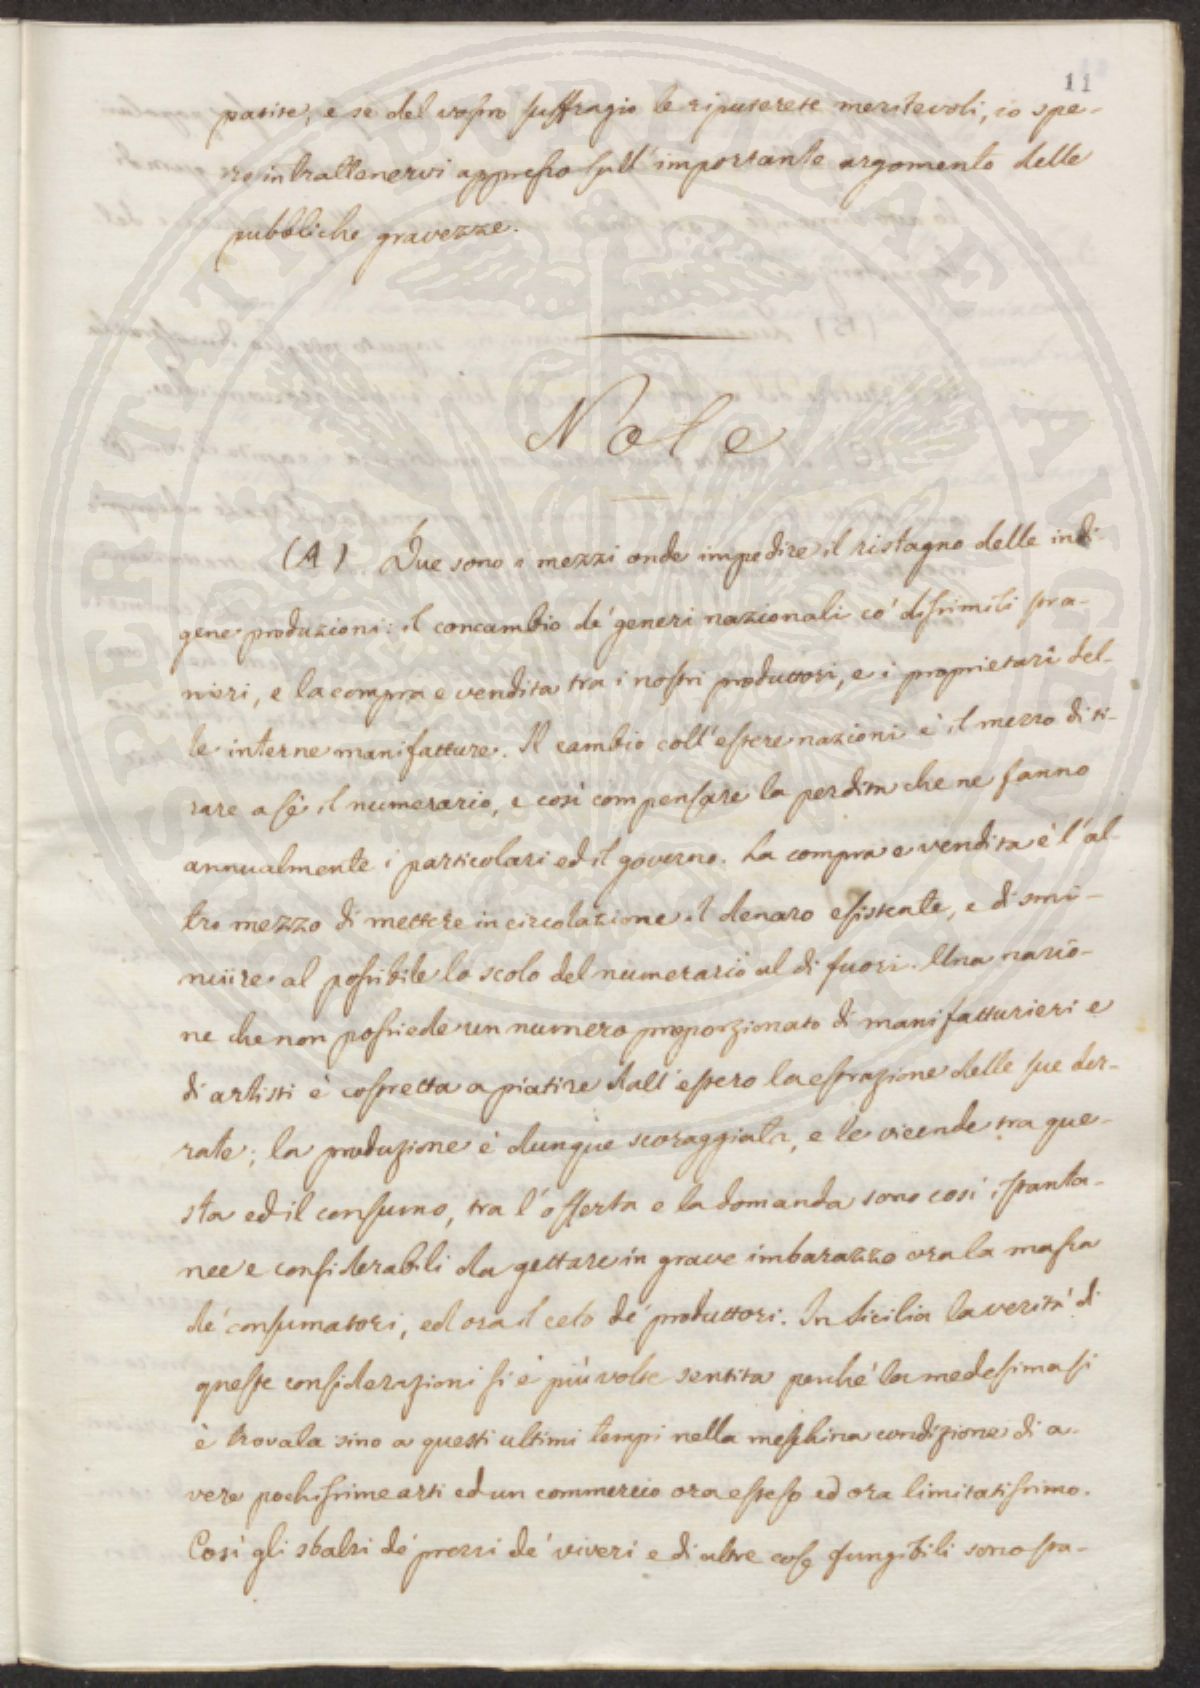 11
patite; e se del vostro suffragio le riputerete meritevoli, io spe-
ro intrattenervi appresso sull'importante argomento delle
pubbliche gravezze.
Note
(A) Due sono i mezzi onde impedire il ristagno delle indi-
gene produzioni: il concambio de' generi nazionali co' dissimili stra-
nieri, e la compra e vendita tra i nostri produttori, e i proprietarî del-
le interne manifatture. Il cambio coll'estere nazioni è il mezzo di ti-
rare a sè il numerario, e così compensare la perdita che ne fanno
annualmente i particolari ed il governo. La compra e vendita è l'al-
tro mezzo di mettere in circolazione il denaro esistente, e di smi-
nuire al possibile lo scolo del numerario al di fuori. Una nazio-
ne che non possiede un numero proporzionato di manifatturieri e
di artisti è costretta a piatire dall'estero la estrazione delle sue der-
rate; la produzione è dunque scoraggiata, e le vicende tra que-
sta ed il consumo, tra l'offerta e la domanda sono così istanta-
nee e considerabili da gettare in grave imbarazzo ora la massa
de' consumatori, ed ora il ceto de' produttori. In Sicilia la verità di
queste considerazioni si è più volte sentita perchè la medesima si
è trovata sino a questi ultimi tempi nella meschina condizione di a-
vere pochissime arti ed un commercio ora esteso ed ora limitatissimo.
Così gli sbalzi de' prezzi de' viveri e di altre cose fungibili sono sta-
PROSPERITATI PUBLICAE AUGENDAE